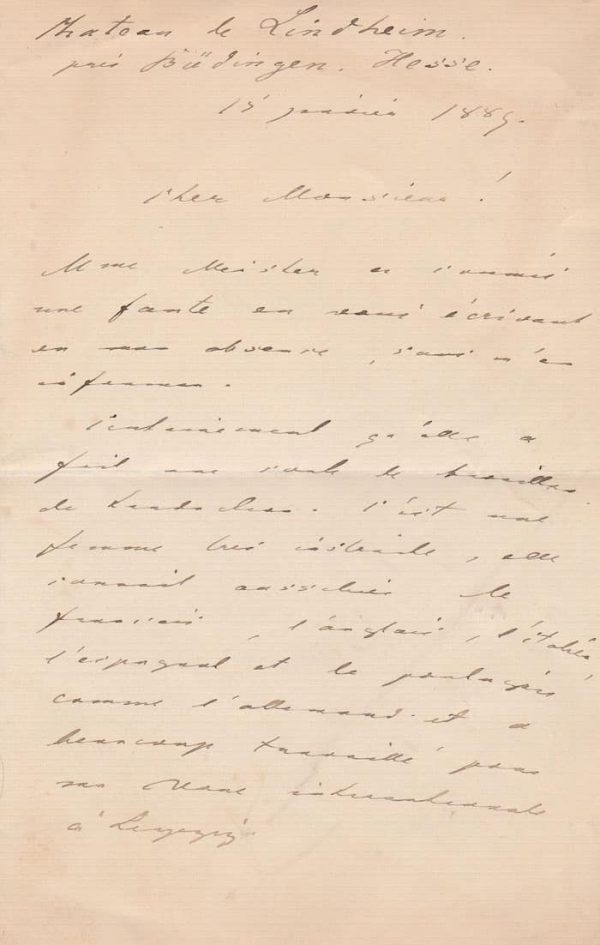 Chateau de Lindheim.
près Büdingen. Hesse.
15 janvier 1889.
Cher Monsieur !
Mme Meister a commis
une faute en vous écrivant
en mon absence, sans m'en
informer.
Certainement qu'elle a
fait une foule de
de Kretzschmar. C'est une
femme très instruite, elle
connait aussi bien le
français, l'anglais, l'italien,
l'espagnol et le portugais
comme l'allemand et a
beaucoup travaillé pour
ma Revue internationale
à Leipzig.